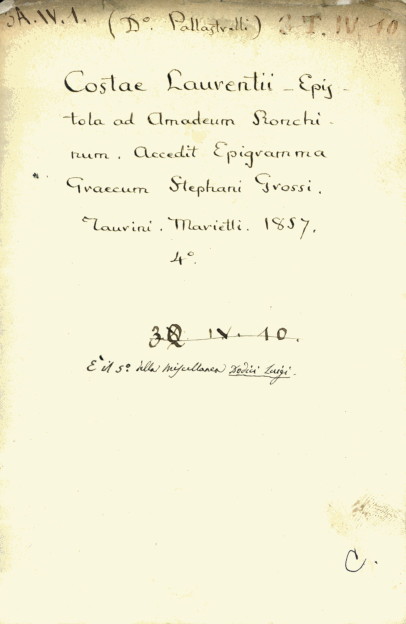 3A.IV.1. (D°. Pallastrelli) 3 T. IV. 10
Costae Laurentii - Epis-
tola ad Amadeum Ronchi-
num. Accedit Epigramma
Graecum Stephani Grossi.
Taurini. Marietti. 1857.
4°.
3Q IV. 10.
È il 5° della miscellanea Dodici Luigi.
C.